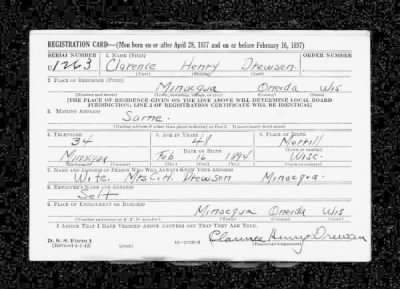 REGISTRATION CARD—(Men born on or after April 28, 1877 and on or before February 16, 1897)
SERIAL NUMBER 1. NAME (Print) ORDER NUMBER
U 1263 Clarence Henry Drewsen
(First) (Middle) (Last)
2. PLACE OF RESIDENCE (Print)
Minocqua Oneida Wis
(Number and street) (Town, township, village, or city) (County) (State)
[THE PLACE OF RESIDENCE GIVEN ON THE LINE ABOVE WILL DETERMINE LOCAL BOARD
JURISDICTION; LINE 2 OF REGISTRATION CERTIFICATE WILL BE IDENTICAL]
3. MAILING ADDRESS
Same.
[Mailing address if other than place indicated on line 2. If same insert word same]
4. TELEPHONE 5. AGE IN YEARS 6. PLACE OF BIRTH
34 48 Merrill
DATE OF BIRTH (Town or county)
Minocqua Feb 16 1894 Wisc.
(Exchange) (Number) (Mo.) (Day) (Yr.) (State or country)
7. NAME AND ADDRESS OF PERSON WHO WILL ALWAYS KNOW YOUR ADDRESS
Wife. Mrs C. H. Drewsen Minocqua.
8. EMPLOYER'S NAME AND ADDRESS
Self
9. PLACE OF EMPLOYMENT OR BUSINESS
Minocqua Oneida Wis
(Number and street or R. F. D. number) (Town) (County) (State)
I AFFIRM THAT I HAVE VERIFIED ABOVE ANSWERS AND THAT THEY ARE TRUE.
D. S. S. Form 1
(Revised 4-1-42) (over)
Clarence Henry Drewsen
(Registrant's signature)